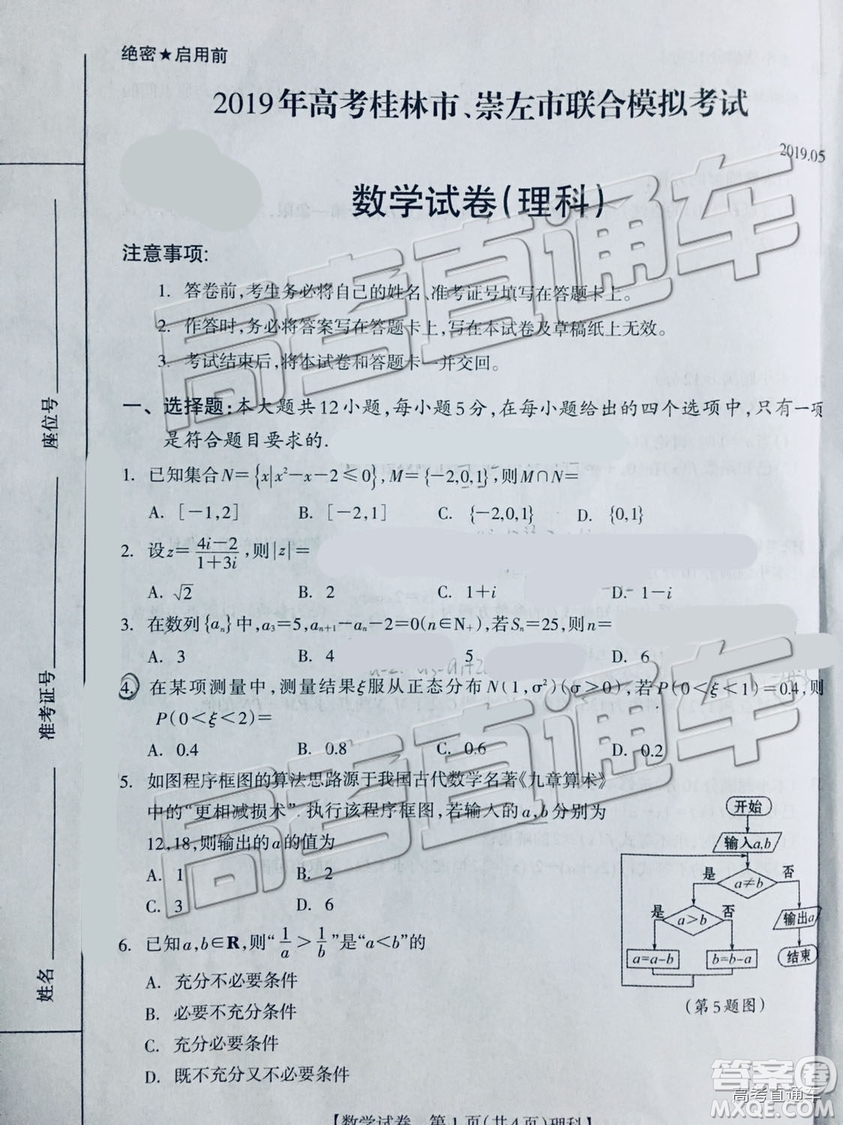 绝密★启用前
2019年高考桂林市、崇左市联合模拟考试
2019.05
数学试卷(理科)
注意事项:
1. 答卷前,考生务必将自己的姓名、准考证号填写在答题卡上。
2. 作答时,务必将答案写在答题卡上,写在本试卷及草稿纸上无效。
3. 考试结束后,将本试卷和答题卡一并交回。
一、选择题:本大题共12小题,每小题5分,在每小题给出的四个选项中,只有一项
是符合题目要求的.
1. 已知集合N={x|x²-x-2≤0},M={-2,0,1},则M∩N=
A. [-1,2] B. [-2,1] C. {-2,0,1} D. {0,1}
2. 设z=(4i-2)/(1+3i),则|z|=
A. √2 B. 2 C. 1+i D. 1-i
3. 在数列{aₙ}中,a₃=5,aₙ₊₁-aₙ-2=0(n∈N₊),若Sₙ=25,则n=
A. 3 B. 4 5 D. 6
4. 在某项测量中,测量结果ξ服从正态分布N(1,σ²)(σ>0),若P(0<ξ<1)=0.4,则
P(0<ξ<2)=
A. 0.4 B. 0.8 C. 0.6 D. 0.2
5. 如图程序框图的算法思路源于我国古代数学名著《九章算术》
中的“更相减损术”.执行该程序框图,若输入的a,b分别为
12,18,则输出的a的值为
A. 1 B. 2
C. 3 D. 6
开始
输入a,b
是 a≠b 否
是 a>b 否
输出a
a=a-b b=b-a
结束
(第5题图)
6. 已知a,b∈R,则“1/a>1/b”是“a<b”的
A. 充分不必要条件
B. 必要不充分条件
C. 充分必要条件
D. 既不充分又不必要条件
【数学试卷 第1页(共4页)理科】
座位号
准考证号
姓名
高考直通车
高考直通车
高考直通车
答案圈
高考直通车
MXQE.COM